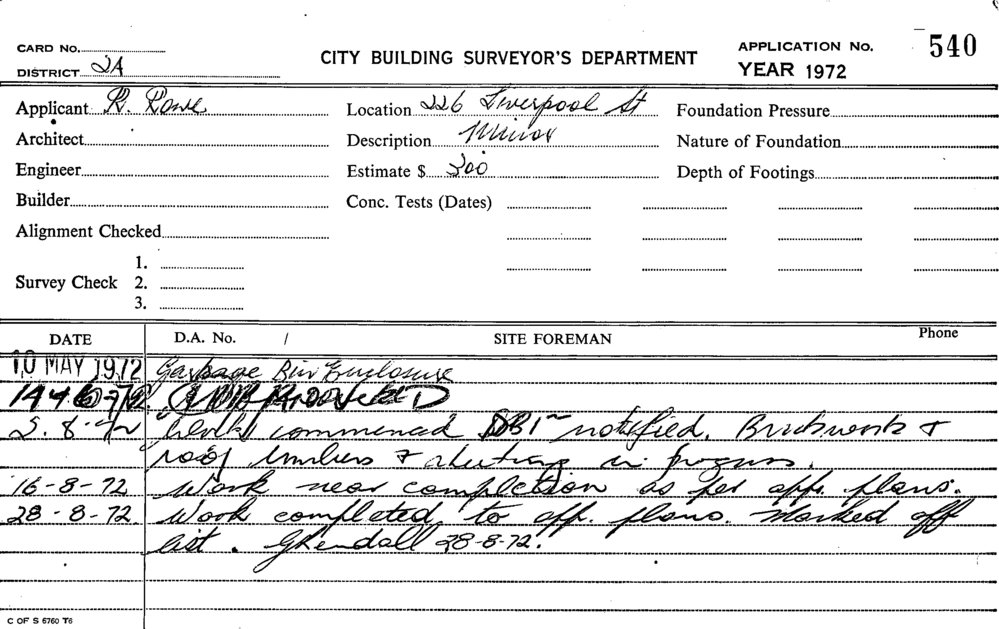 CARD No.
DISTRICT 2A
CITY BUILDING SURVEYOR'S DEPARTMENT
APPLICATION No. 540
YEAR 1972
Applicant R. Rowe
Location 226 Liverpool St
Foundation Pressure
Architect
Description Minor
Nature of Foundation
Engineer
Estimate $ 200
Depth of Footings
Builder
Conc. Tests (Dates)
Alignment Checked
Survey Check 1.
2.
3.
DATE D.A. No. / SITE FOREMAN Phone
10 MAY 1972 Garbage Bin Enclosure
APPROVED
2.8.72 Work commenced notified. Brickwork &
roof timbers & sheeting in progress.
16-8-72 Work near completion as per app. plans.
28-8-72 Work completed to app. plans. Marked off
list. GKendall 28-8-72.
C OF S 6760 T6